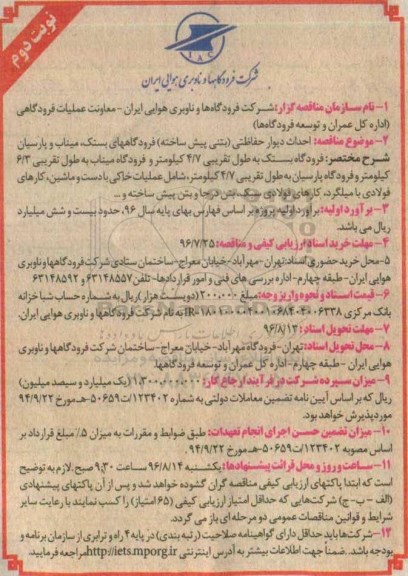 نوبت دوم
شرکت فرودگاهها و ناوبری هوایی ایران
۱- نام سازمان مناقصه گزار: شرکت فرودگاه‌ها و ناوبری هوایی ایران - معاونت عملیات فرودگاهی
(اداره کل عمران و توسعه فرودگاه‌ها)
۲- موضوع مناقصه: احداث دیوار حفاظتی (بتنی پیش ساخته) فرودگاههای بستک، میناب و پارسیان
شرح مختصر: فرودگاه بستک به طول تقریبی ۴/۷ کیلومتر و فرودگاه میناب به طول تقریبی ۶/۳
کیلومتر و فرودگاه پارسیان به طول تقریبی ۴/۷ کیلومتر، شامل عملیات خاکی با دست و ماشین، کارهای
فولادی با میلگرد، کارهای فولادی سبک، بتن درجا و بتن پیش ساخته و...
۳- برآورد اولیه: برآورد اولیه پروژه بر اساس فهارس بهای پایه سال ۹۶، حدود بیست و شش میلیارد
ریال می باشد.
۴- مهلت خرید اسناد ارزیابی کیفی و مناقصه: ۹۶/۷/۲۵
۵- محل خرید حضوری اسناد: تهران- مهرآباد- خیابان معراج- ساختمان ستادی شرکت فرودگاهها و ناوبری
هوایی ایران- طبقه چهارم- اداره بررسی های فنی و امور قراردادها- تلفن ۶۳۱۴۸۵۵۷ و ۶۳۱۴۸۵۹۲
۶- قیمت اسناد و نحوه واریز وجه: مبلغ ۲۰۰,۰۰۰ (دویست هزار) ریال به شماره حساب شبا خزانه
بانک مرکزی به نام شرکت فرودگاهها و ناوبری هوایی ایران.
۷- مهلت تحویل اسناد: ۹۶/۸/۱۳
۸- محل تحویل اسناد: تهران- فرودگاه مهرآباد- خیابان معراج- ساختمان شرکت فرودگاهها و ناوبری
هوایی ایران- طبقه چهارم- اداره کل عمران و توسعه فرودگاهها.
۹- میزان سپرده شرکت در فرآیند ارجاع کار: ۱,۳۰۰,۰۰۰,۰۰۰ (یک میلیارد و سیصد میلیون)
ریال که بر اساس آیین نامه تضمین معاملات دولتی به شماره ۱۲۳۴۰۲/ت۵۰۶۵۹-هـ مورخ ۹۴/۹/۲۲
مورد پذیرش خواهد بود.
۱۰- میزان تضمین حسن اجرای انجام تعهدات: طبق ضوابط و مقررات به میزان ۵٪ مبلغ قرارداد بر
اساس مصوبه ۱۲۳۴۰۲/ت۵۰۶۵۹-هـ مورخ ۹۴/۹/۲۲.
۱۱- ساعت و روز و محل قرائت پیشنهادها: یکشنبه ۹۶/۸/۱۴ ساعت ۹:۳۰ صبح. لازم به توضیح
است که ابتدا پاکتهای ارزیابی کیفی مناقصه گران گشوده خواهد شد و پس از آن پاکتهای پیشنهادی
(الف - ب - ج) شرکت‌هایی که حداقل امتیاز ارزیابی کیفی (۶۵ امتیاز) را کسب نمایند با رعایت سایر
شرایط و قوانین مناقصات عمومی دو مرحله ای باز می گردد.
۱۲- شرکت‌ها باید حداقل دارای گواهینامه صلاحیت (رتبه بندی) در پایه ۴ راه و ترابری از سازمان برنامه و
بودجه باشد. ضمناً جهت اطلاعات بیشتر به آدرس اینترنتی http://iets.mporg.ir مراجعه فرمایید.